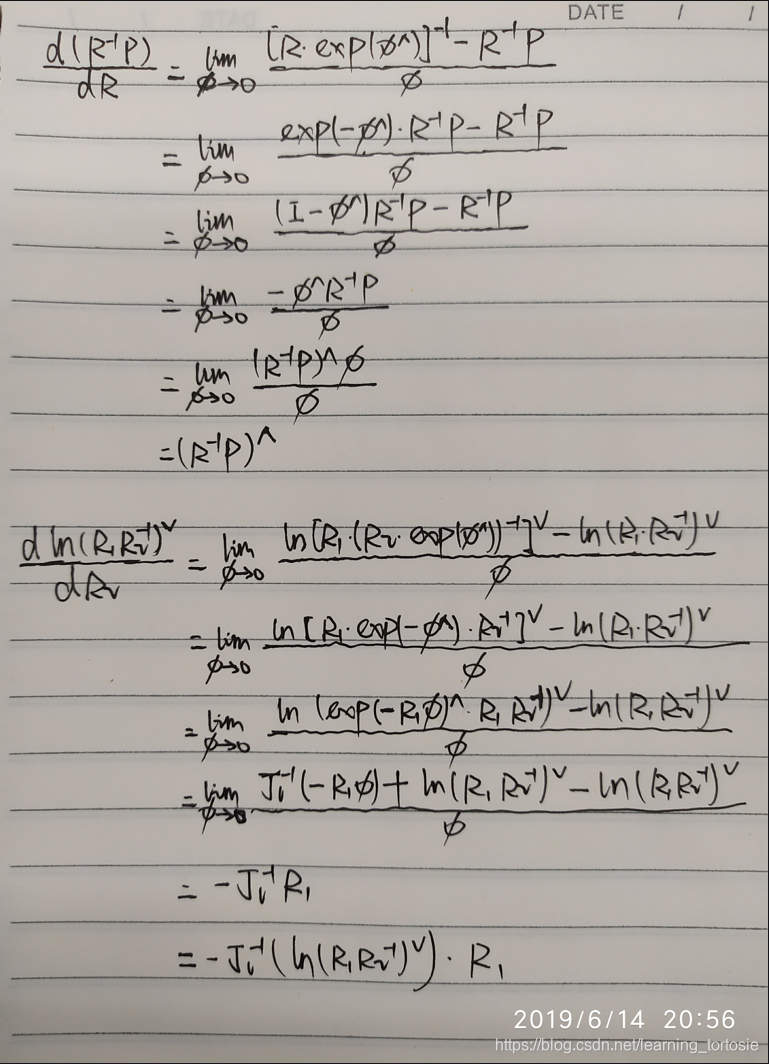 DATE / /
d(R⁻¹P)/dR = lim_{ϕ→0} ([R·exp(ϕ^)]⁻¹ - R⁻¹P)/ϕ
= lim_{ϕ→0} (exp(-ϕ^)·R⁻¹P - R⁻¹P)/ϕ
= lim_{ϕ→0} ((I-ϕ^)R⁻¹P - R⁻¹P)/ϕ
= lim_{ϕ→0} (-ϕ^R⁻¹P)/ϕ
= lim_{ϕ→0} ((R⁻¹P)^ϕ)/ϕ
= (R⁻¹P)^
d ln(R₁R₂⁻¹)ᵛ/dR₂ = lim_{ϕ→0} (ln[R₁·(R₂·exp(ϕ^))⁻¹]ᵛ - ln(R₁·R₂⁻¹)ᵛ)/ϕ
= lim_{ϕ→0} (ln[R₁·exp(-ϕ^)·R₂⁻¹]ᵛ - ln(R₁·R₂⁻¹)ᵛ)/ϕ
= lim_{ϕ→0} (ln(exp(-R₁ϕ)^·R₁R₂⁻¹)ᵛ - ln(R₁R₂⁻¹)ᵛ)/ϕ
= lim_{ϕ→0} (Jₗ⁻¹(-R₁ϕ) + ln(R₁R₂⁻¹)ᵛ - ln(R₁R₂⁻¹)ᵛ)/ϕ
= -Jₗ⁻¹R₁
= -Jₗ⁻¹(ln(R₁R₂⁻¹)ᵛ)·R₁
2019/6/14 20:56
https://blog.csdn.net/learning_tortosie